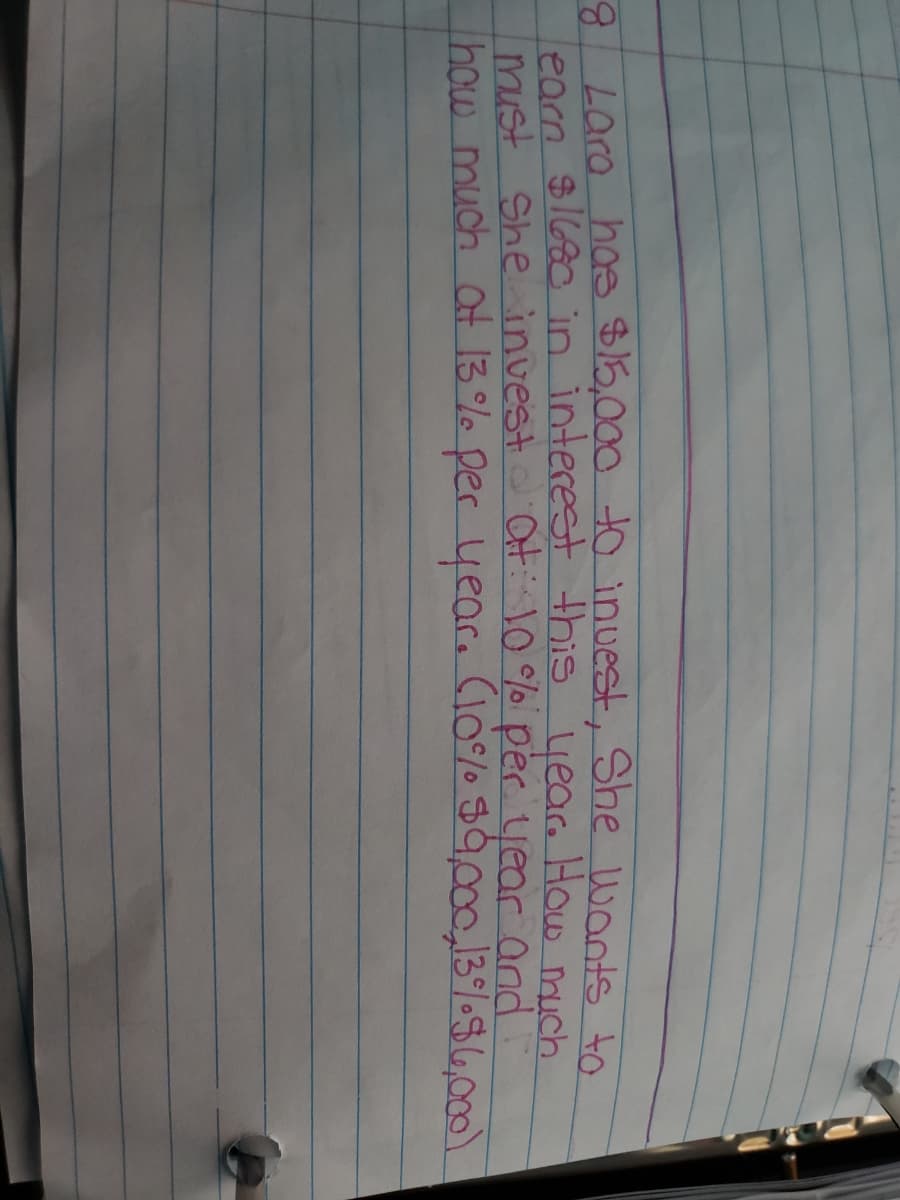 8 Lara has $15,000 to invest, She wants to
earn $1680 in interest this year. How much
must she invest at 10% per year and
how much at 13% per year. (10% $9,000, 13% $6,000)